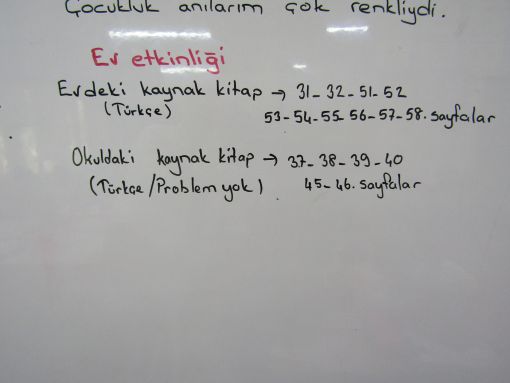 Çocukluk anılarım çok renkliydi.
Ev etkinliği
Evdeki kaynak kitap → 31-32-51-52
(Türkçe) 53-54-55-56-57-58. sayfalar
Okuldaki kaynak kitap → 37-38-39-40
(Türkçe/Problem yok) 45-46. sayfalar